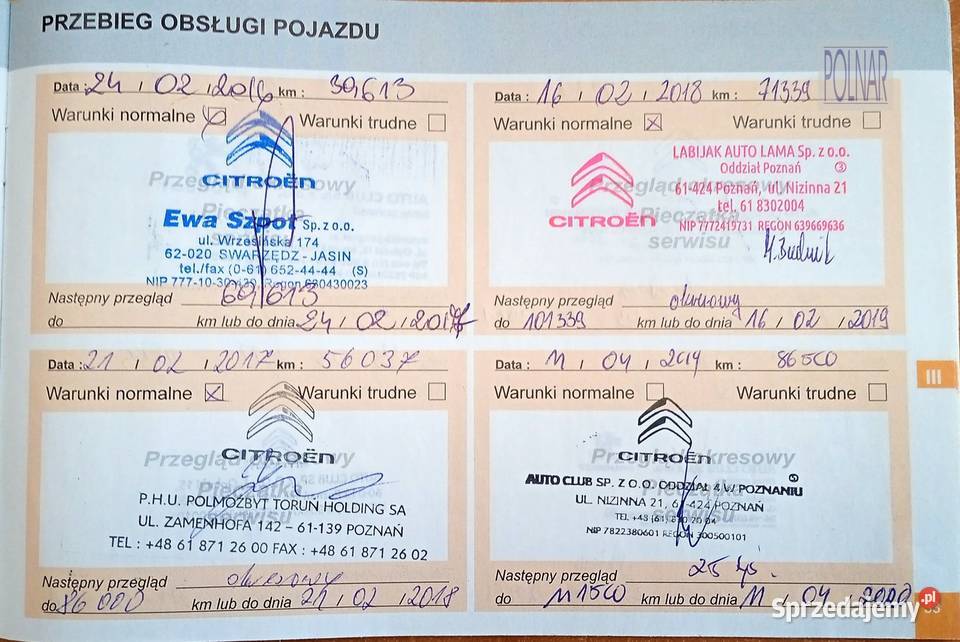 PRZEBIEG OBSŁUGI POJAZDU
POLNAR
Data : 24 / 02 / 2016 km : 39613
Warunki normalne Warunki trudne
Przegląd okresowy
Pieczątka
CITROËN
Ewa Szpot Sp. z o.o.
ul. Wrzesińska 174
62-020 SWARZĘDZ - JASIN
tel./fax (0-61) 652-44-44 (S)
NIP 777-10-30 Regon 630430023
Następny przegląd 69613
do km lub do dnia 24 / 02 / 2017
Data : 16 / 02 / 2018 km : 71339
Warunki normalne Warunki trudne
LABIJAK AUTO LAMA Sp. z o.o.
Oddział Poznań ③
Przegląd okresowy
61-424 Poznań, ul. Nizinna 21
Pieczątka
tel. 61 8302004
CITROËN
NIP 7772419731 REGON 639669636
serwisu
M. Budnik
Następny przegląd okresowy
do 101339 km lub do dnia 16 / 02 / 2019
Data : 21 / 02 / 2017 km : 56037
Warunki normalne Warunki trudne
CITROËN
Przegląd okresowy
Pieczątka
P.H.U. POLMOZBYT TORUŃ HOLDING SA
serwisu
UL. ZAMENHOFA 142 – 61-139 POZNAŃ
TEL : +48 61 871 26 00 FAX : +48 61 871 26 02
Następny przegląd okresowy
do 86000 km lub do dnia 21 / 02 / 2018
Data : 11 / 04 / 2019 km : 86500
Warunki normalne Warunki trudne
CITROËN
Przegląd okresowy
AUTO CLUB SP. Z O.O. ODDZIAŁ 4 W POZNANIU
Pieczątka
UL. NIZINNA 21, 61-424 POZNAŃ
serwisu
TEL +48 (61) 830 20 04
NIP 7822380601 REGON 300500101
Następny przegląd 25 tys.
do 111500 km lub do dnia 11 / 04 / 2020
III
Sprzedajemy.pl